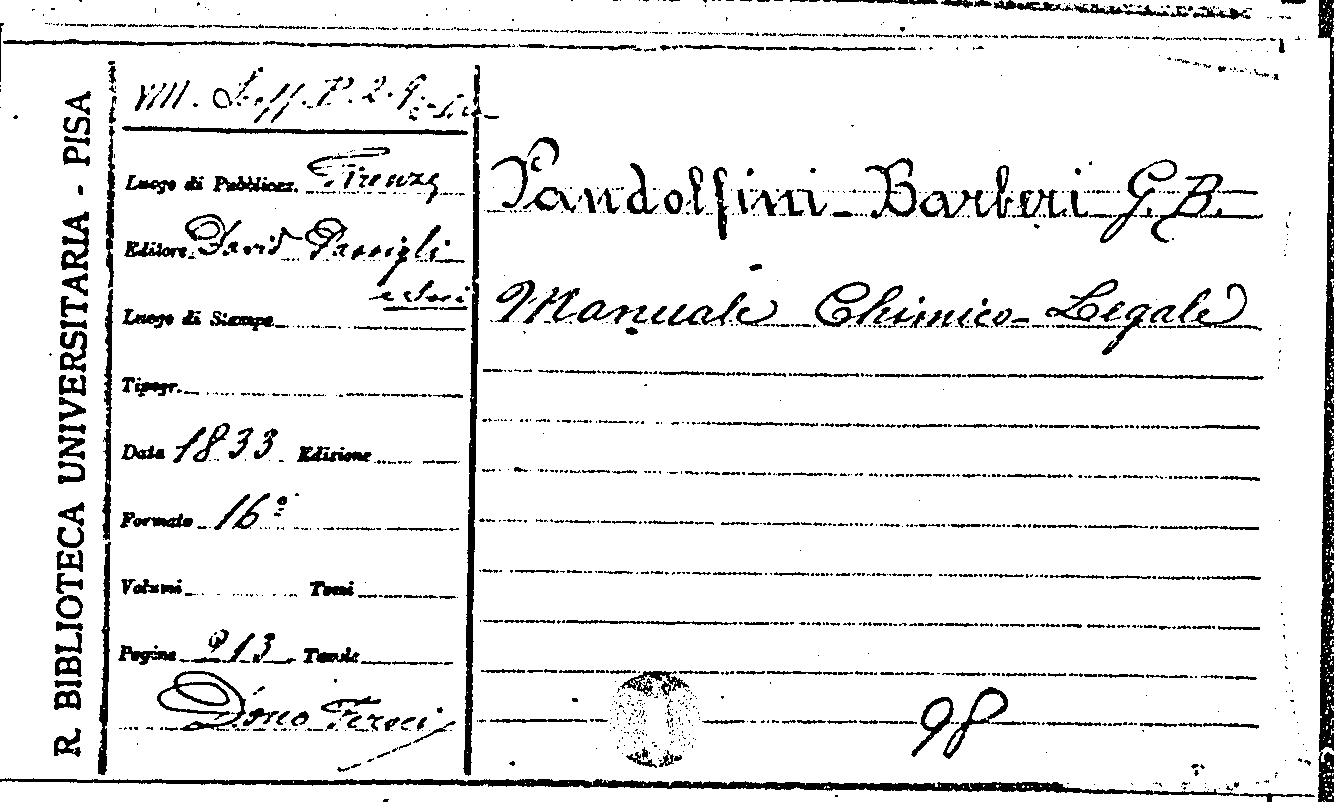 R BIBLIOTECA UNIVERSITARIA - PISA
Luogo di Pubblicaz. Firenze
Editore David Passigli
e Soci
Luogo di Stampa
Tipogr.
Data 1833 Edizione
Formato 16º
Volumi Tomi
Pagine 213 Tavole
Dono Feroci
Pandolfini-Barberi G. B.
Manuale Chimico-Legale
98